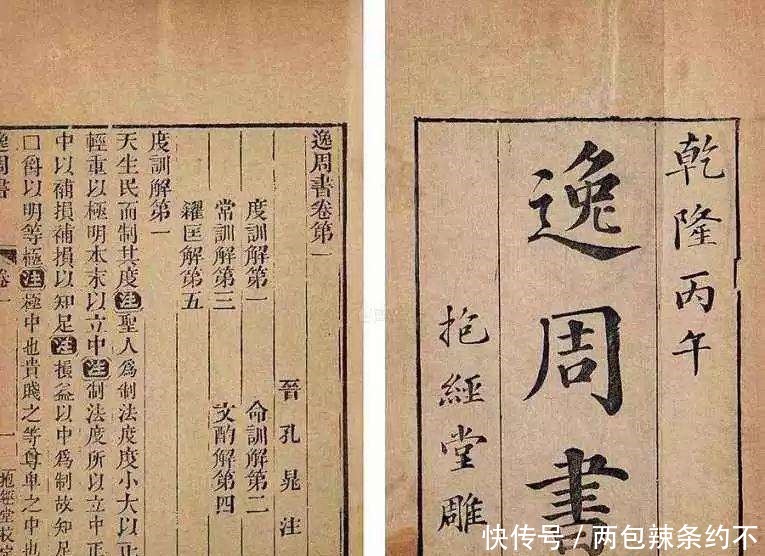 乾隆丙午
逸周書
抱經堂雕
逸周書卷第一
晉孔晁注
度訓解第一 命訓解第二
常訓解第三 文酌解第四
糴匡解第五
度訓解第一
天生民而制其度注聖人爲制法度度小大以正
輕重以極明本末以立中注制法度所以立中正
中以補損補損以知足注損益以中爲制故知足
口爵以明等極注極中也貴賤之等尊卑之中也
逸周書 卷一 一 抱經堂校定
快传号 / 两包辣条约不